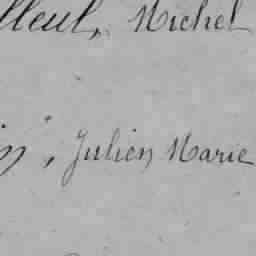 lleul, Michel
, Julien Marie